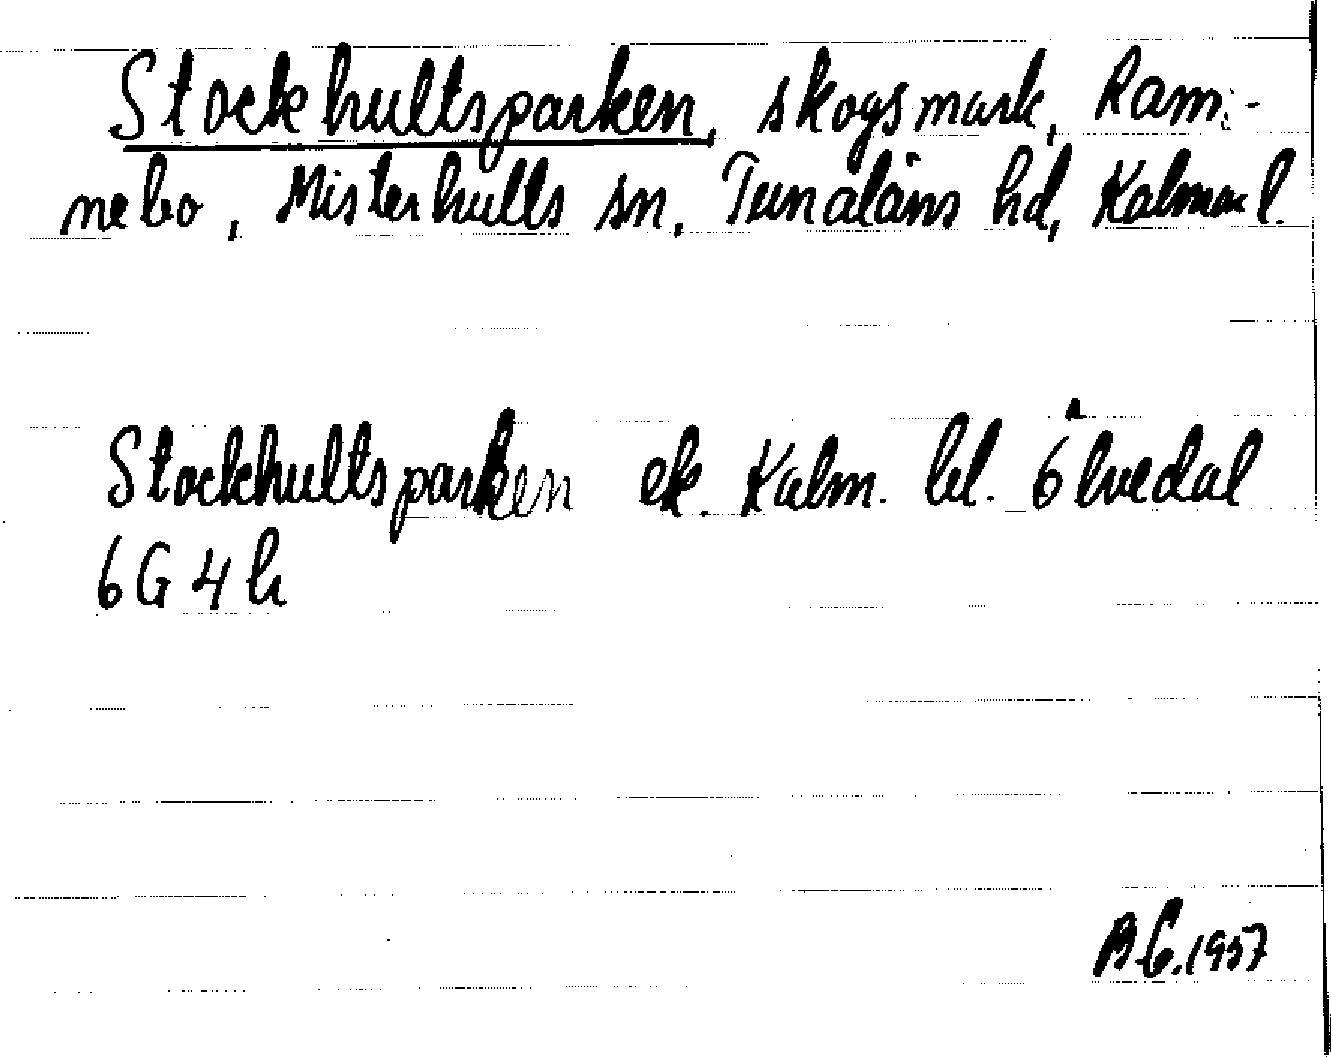 Stockhultsparken, skogsmark, Ram-
nebo, Misterhults sn, Tunaläns hd, Kalmar l.
Stockhultsparken ek. Kalm. bl. Ölvedal
6G4h
B.G. 1957